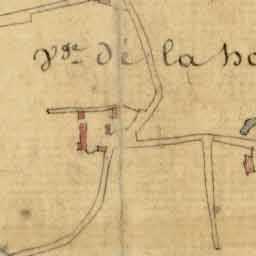 Vge. de la ho